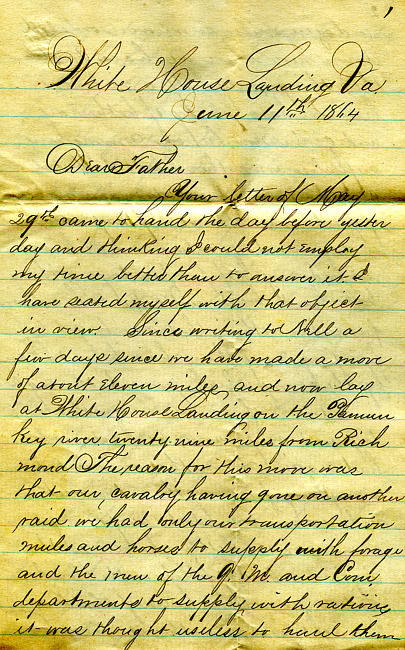 1
White House Landing Va
June 11th 1864
Dear Father
Your letter of May
29th came to hand the day before yester
day and thinking I could not employ
my time better than to answer it. I
have seated myself with that object
in view. Since writing to Nell a
few days since we have made a move
of about eleven miles, and now lay
at White House Landing on the Pamun
key river twenty nine miles from Rich
mond The reason for this move was
that our, cavalry having gone on another
raid we had, only our transportation
mules and horses to supply with forage
and the men of the Q. M. and Com
departments to supply with rations
it was thought useless to haul them